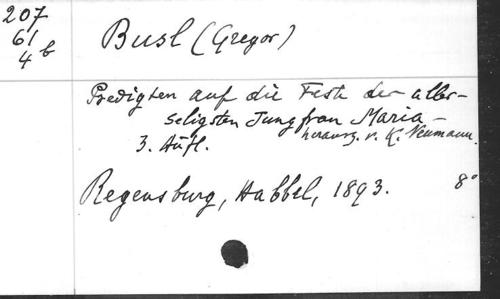 207
61
4 b
Busl (Gregor)
Predigten auf die Feste der aller-
seligsten Jungfrau Maria –
herausg. v. K. Neumann.
3. Aufl.
Regensburg, Habbel, 1893. 8°